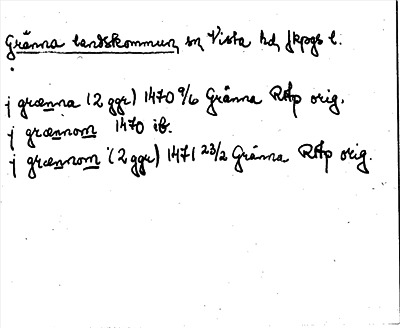 Gränna landskommun, sn, Vista hd, Jkpgs l.
j grænna (2 ggr) 1470 9/6 Gränna RAp orig.
j grænnom 1470 ib.
j grænnom (2 ggr) 1471 23/2 Gränna RAp orig.